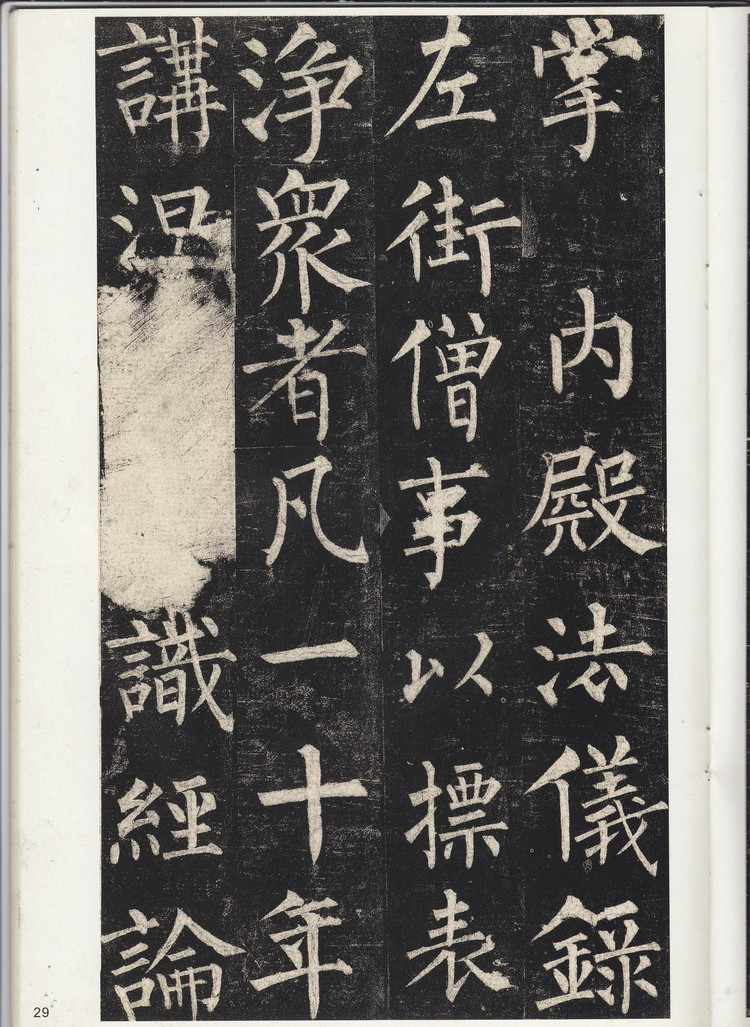 掌内殿法儀錄
左街僧事以摽表
淨衆者凡一十年
講涅識經論
29